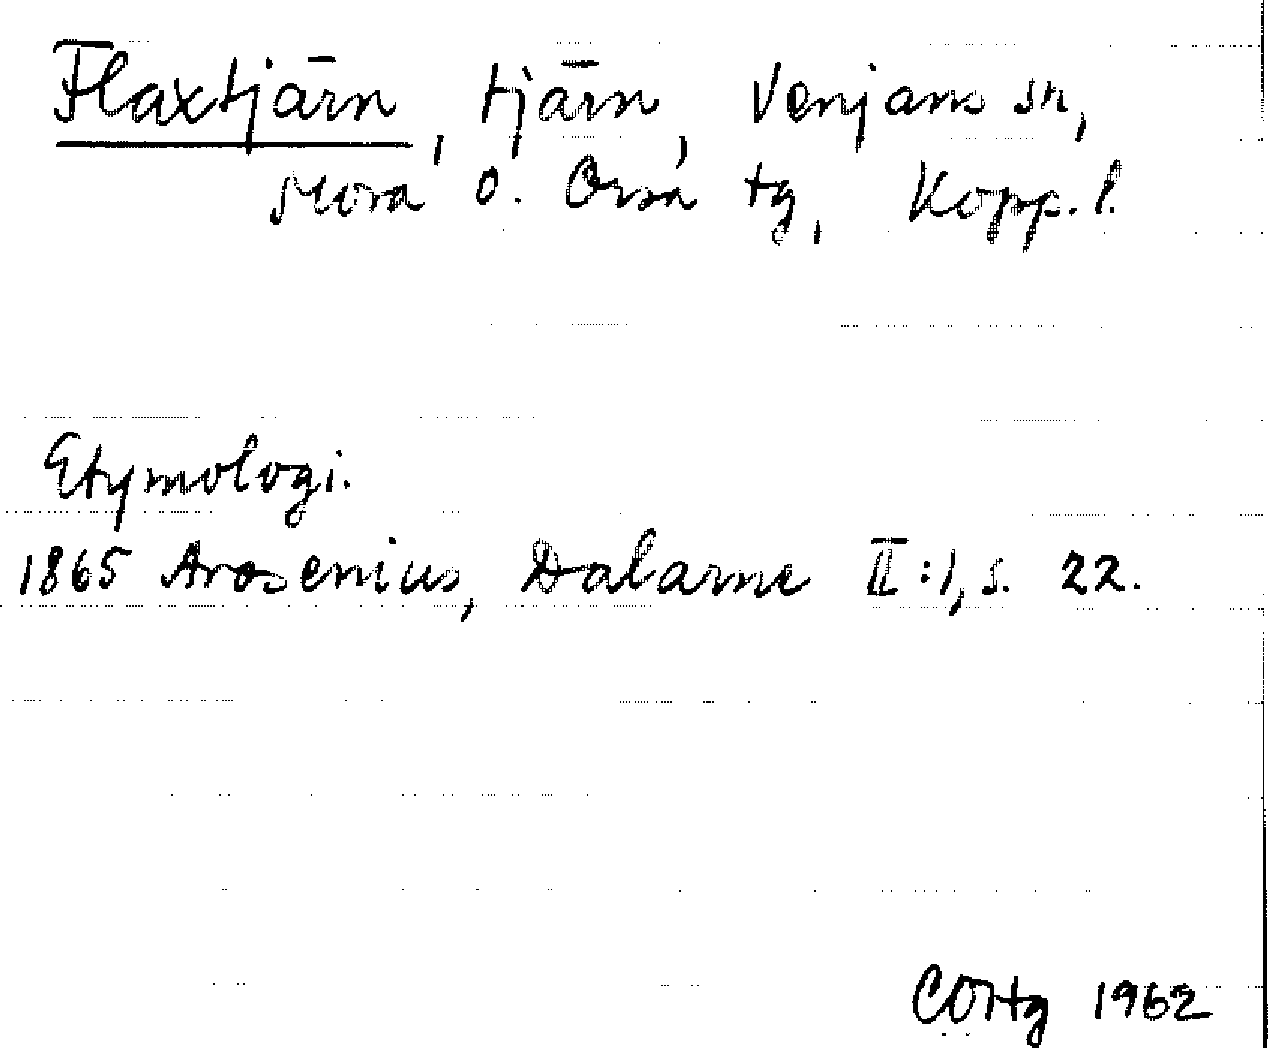 Flaxtjärn, tjärn, Venjans sn,
Mora o. Orsa tg, Kopp. l.
Etymologi.
1865 Arosenius, Dalarne II:1, s. 22.
1962